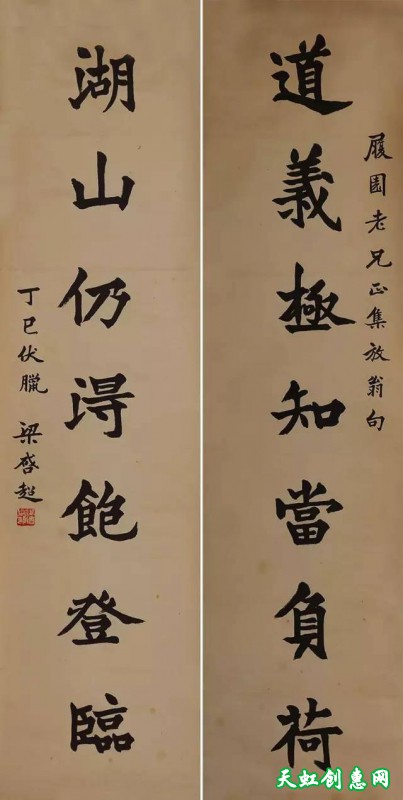 道義極知當負荷
履園老兄正集放翁句
湖山仍淂飽登臨
丁巳伏臘 梁啓超
天虹创惠网